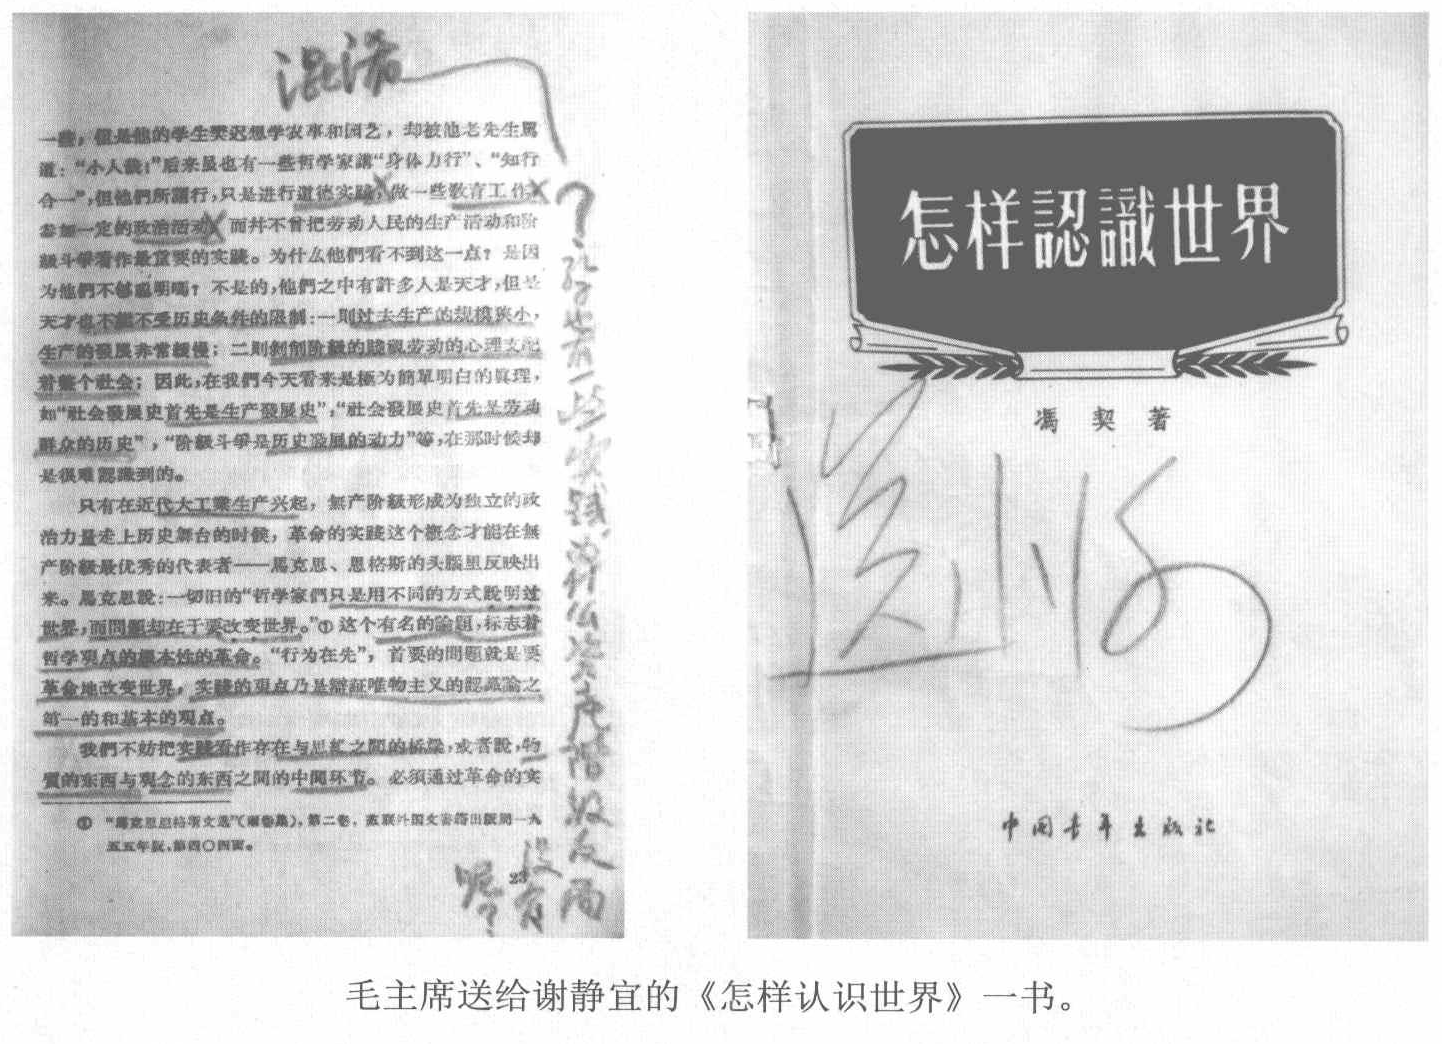 混淆
一些，但是他的学生樊迟想学农事和园艺，却被他老先生罵
道：“小人哉！”后来虽也有一些哲学家講“身体力行”、“知行
合一”，但他們所謂行，只是进行道德实踐，做一些教育工作，
参加一定的政治活动，而并不曾把劳动人民的生产活动和阶
級斗爭看作最重要的实踐。为什么他們看不到这一点？是因
为他們不够聪明嗎？不是的，他們之中有許多人是天才，但是
天才也不能不受历史条件的限制：一則过去生产的規模狭小，
生产的發展非常緩慢；二則剝削阶級的賤視劳动的心理支配
着整个社会；因此，在我們今天看来是極为簡單明白的眞理，
如“社会發展史首先是生产發展史”，“社会發展史首先是劳动
群众的历史”，“阶級斗爭是历史發展的动力”等，在那时候却
是很难認識到的。
只有在近代大工業生产兴起，無产阶級形成为独立的政
治力量走上历史舞台的时候，革命的实踐这个概念才能在無
产阶級最优秀的代表者——馬克思、恩格斯的头腦里反映出
来。馬克思說：一切旧的“哲学家們只是用不同的方式說明过
世界，而問題却在于要改变世界。”① 这个有名的論題，标志着
哲学观点的根本性的革命。“行为在先”，首要的問題就是要
革命地改变世界，实踐的观点乃是辯証唯物主义的認識論之
第一的和基本的观点。
我們不妨把实踐看作存在与思維之間的桥梁，或者說，物
質的东西与观念的东西之間的中間环节。必須通过革命的实
① “馬克思恩格斯文选”（兩卷集），第二卷，莫斯科外国文書籍出版局一九
五五年版，第四〇四面。
23
？孔子也有一些实踐，为什么
没有
呢？
怎样認識世界
馮契著
送小谢
中国青年出版社
毛主席送给谢静宜的《怎样认识世界》一书。